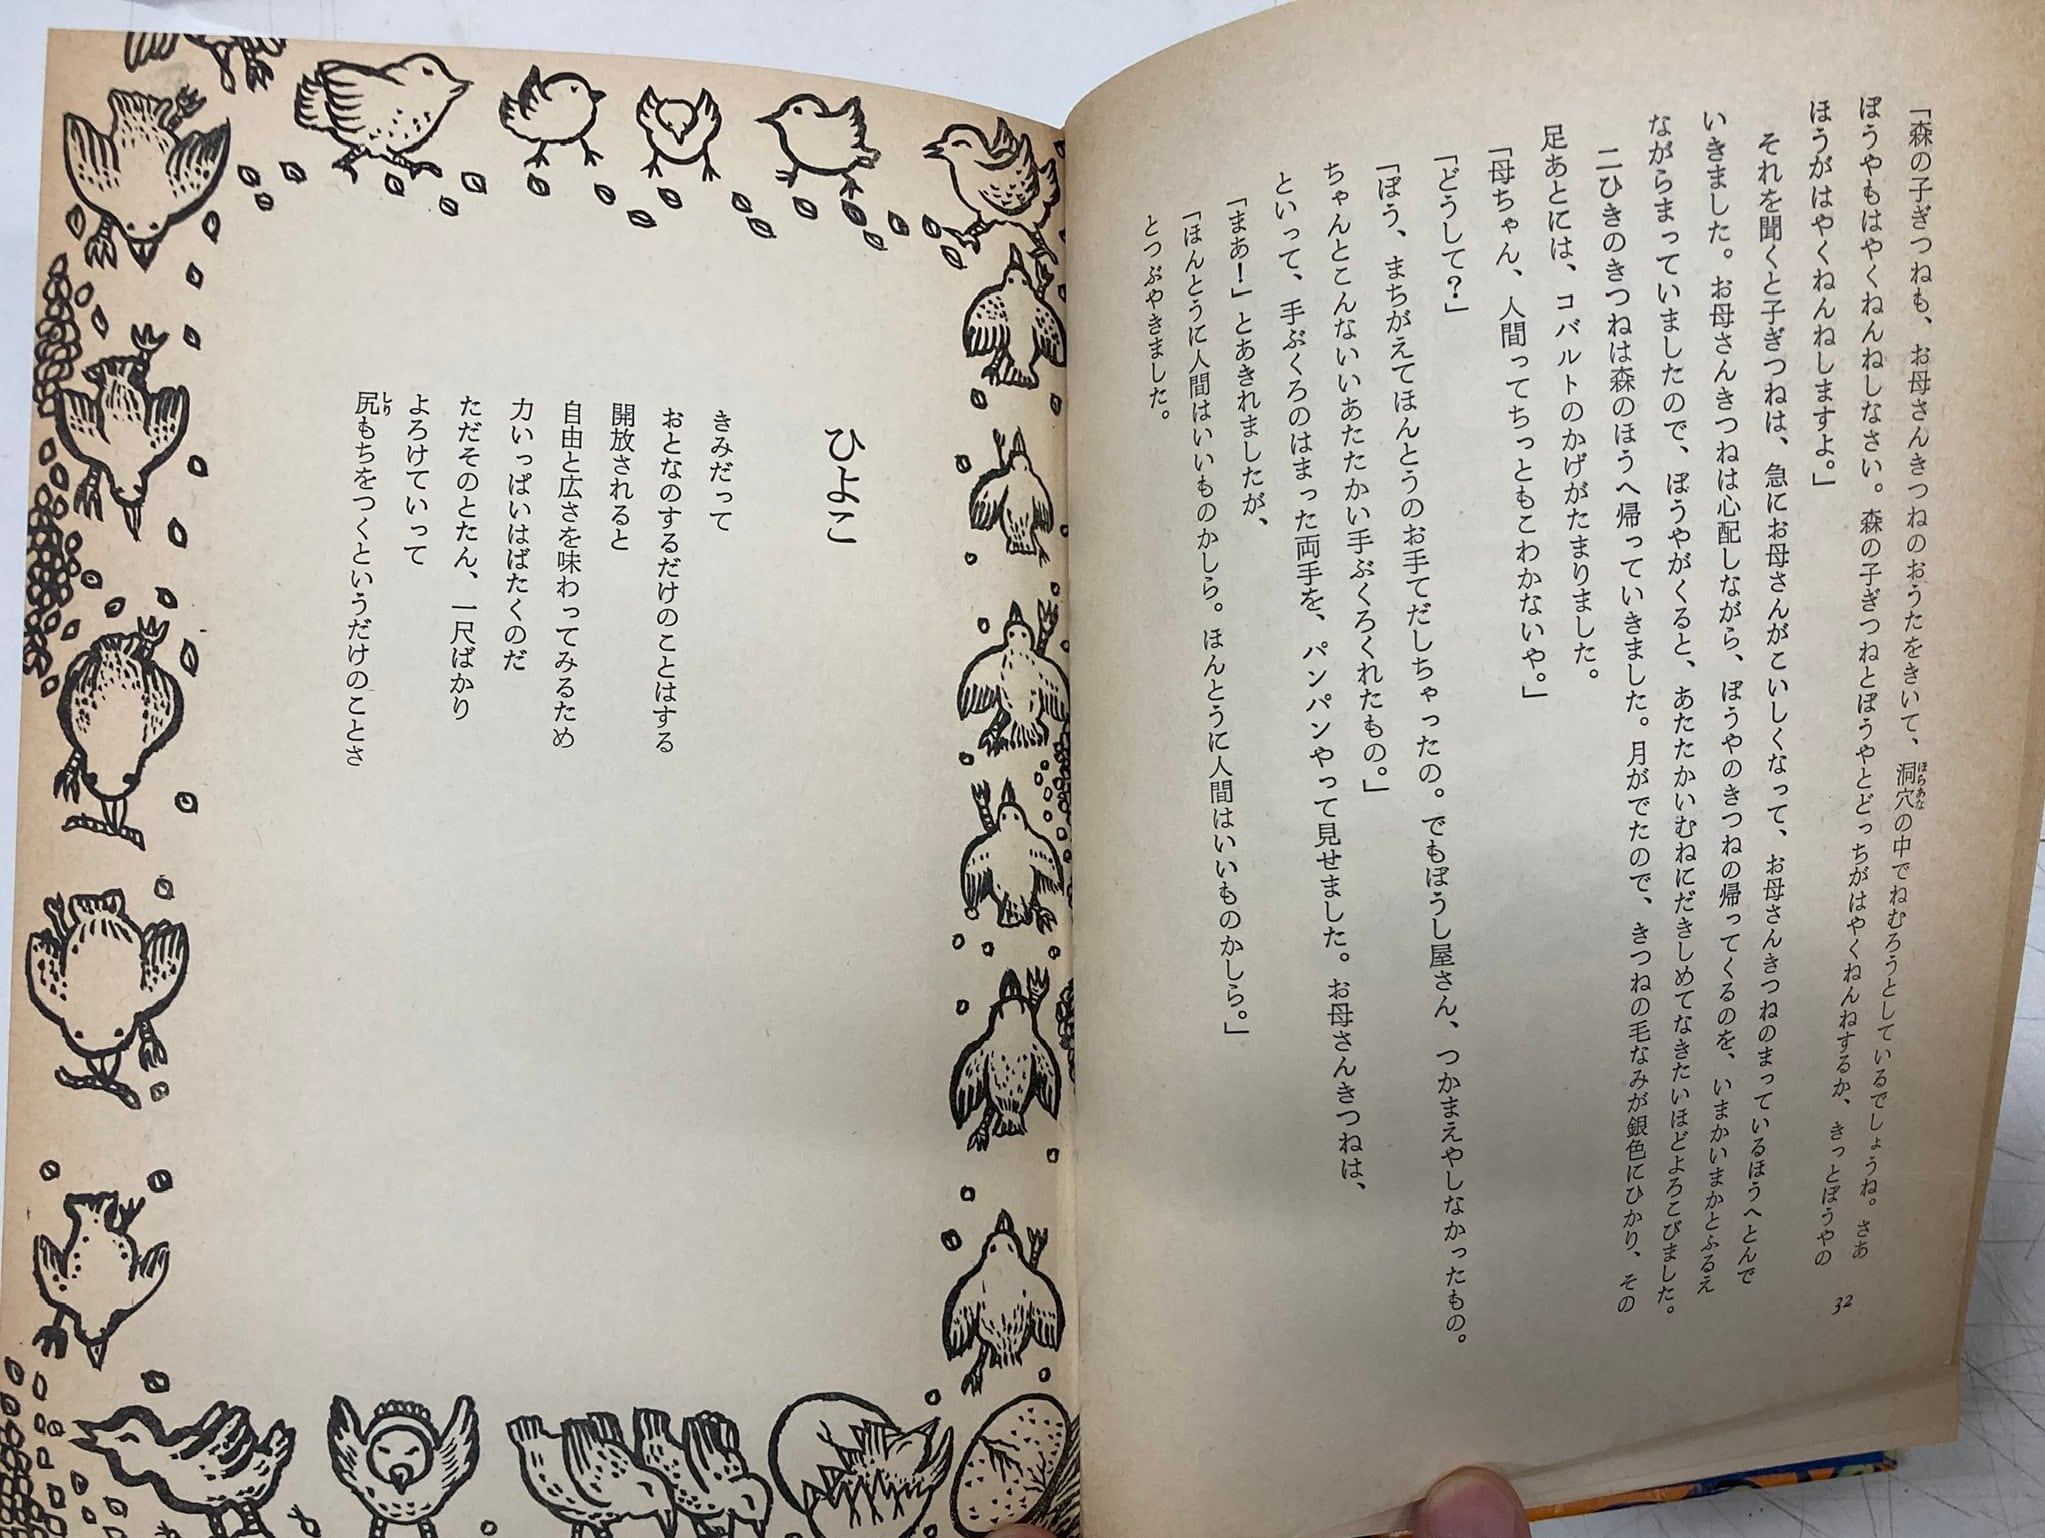 「森の子ぎつねも、お母さんきつねのおうたをきいて、洞穴の中でねむろうとしているでしょうね。さあ
ほらあな
ぼうやもはやくねんねしなさい。森の子ぎつねとぼうやとどっちがはやくねんねするか、きっとぼうやの
ほうがはやくねんねしますよ。」
それを聞くと子ぎつねは、急にお母さんがこいしくなって、お母さんきつねのまっているほうへとんで
いきました。お母さんきつねは心配しながら、ぼうやのきつねの帰ってくるのを、いまかいまかとふるえ
ながらまっていましたので、ぼうやがくると、あたたかいむねにだきしめてなきたいほどよろこびました。
二ひきのきつねは森のほうへ帰っていきました。月がでたので、きつねの毛なみが銀色にひかり、その
足あとには、コバルトのかげがたまりました。
「母ちゃん、人間ってちっともこわかないや。」
「どうして?」
「ぼう、まちがえてほんとうのお手てだしちゃったの。でもぼうし屋さん、つかまえやしなかったもの。
ちゃんとこんないいあたたかい手ぶくろくれたもの。」
といって、手ぶくろのはまった両手を、パンパンやって見せました。お母さんきつねは、
「まあ!」とあきれましたが、
「ほんとうに人間はいいものかしら。ほんとうに人間はいいものかしら。」
とつぶやきました。
32
ひよこ
きみだって
おとなのするだけのことはする
開放されると
自由と広さを味わってみるため
力いっぱいはばたくのだ
ただそのとたん、一尺ばかり
よろけていって
尻もちをつくというだけのことさ
しり